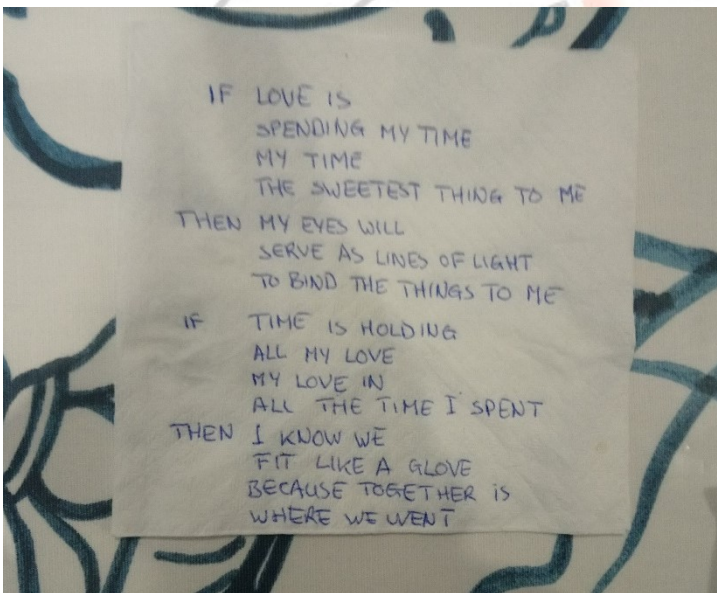 IF LOVE IS
SPENDING MY TIME
MY TIME
THE SWEETEST THING TO ME
THEN MY EYES WILL
SERVE AS LINES OF LIGHT
TO BIND THE THINGS TO ME
IF TIME IS HOLDING
ALL MY LOVE
MY LOVE IN
ALL THE TIME I SPENT
THEN I KNOW WE
FIT LIKE A GLOVE
BECAUSE TOGETHER iS
WHERE WE WENT